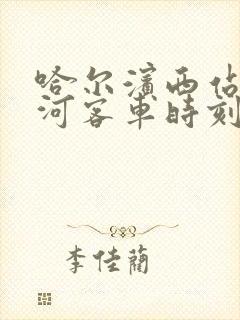 哈尔滨西佔
河客车时刻
李佳蔺